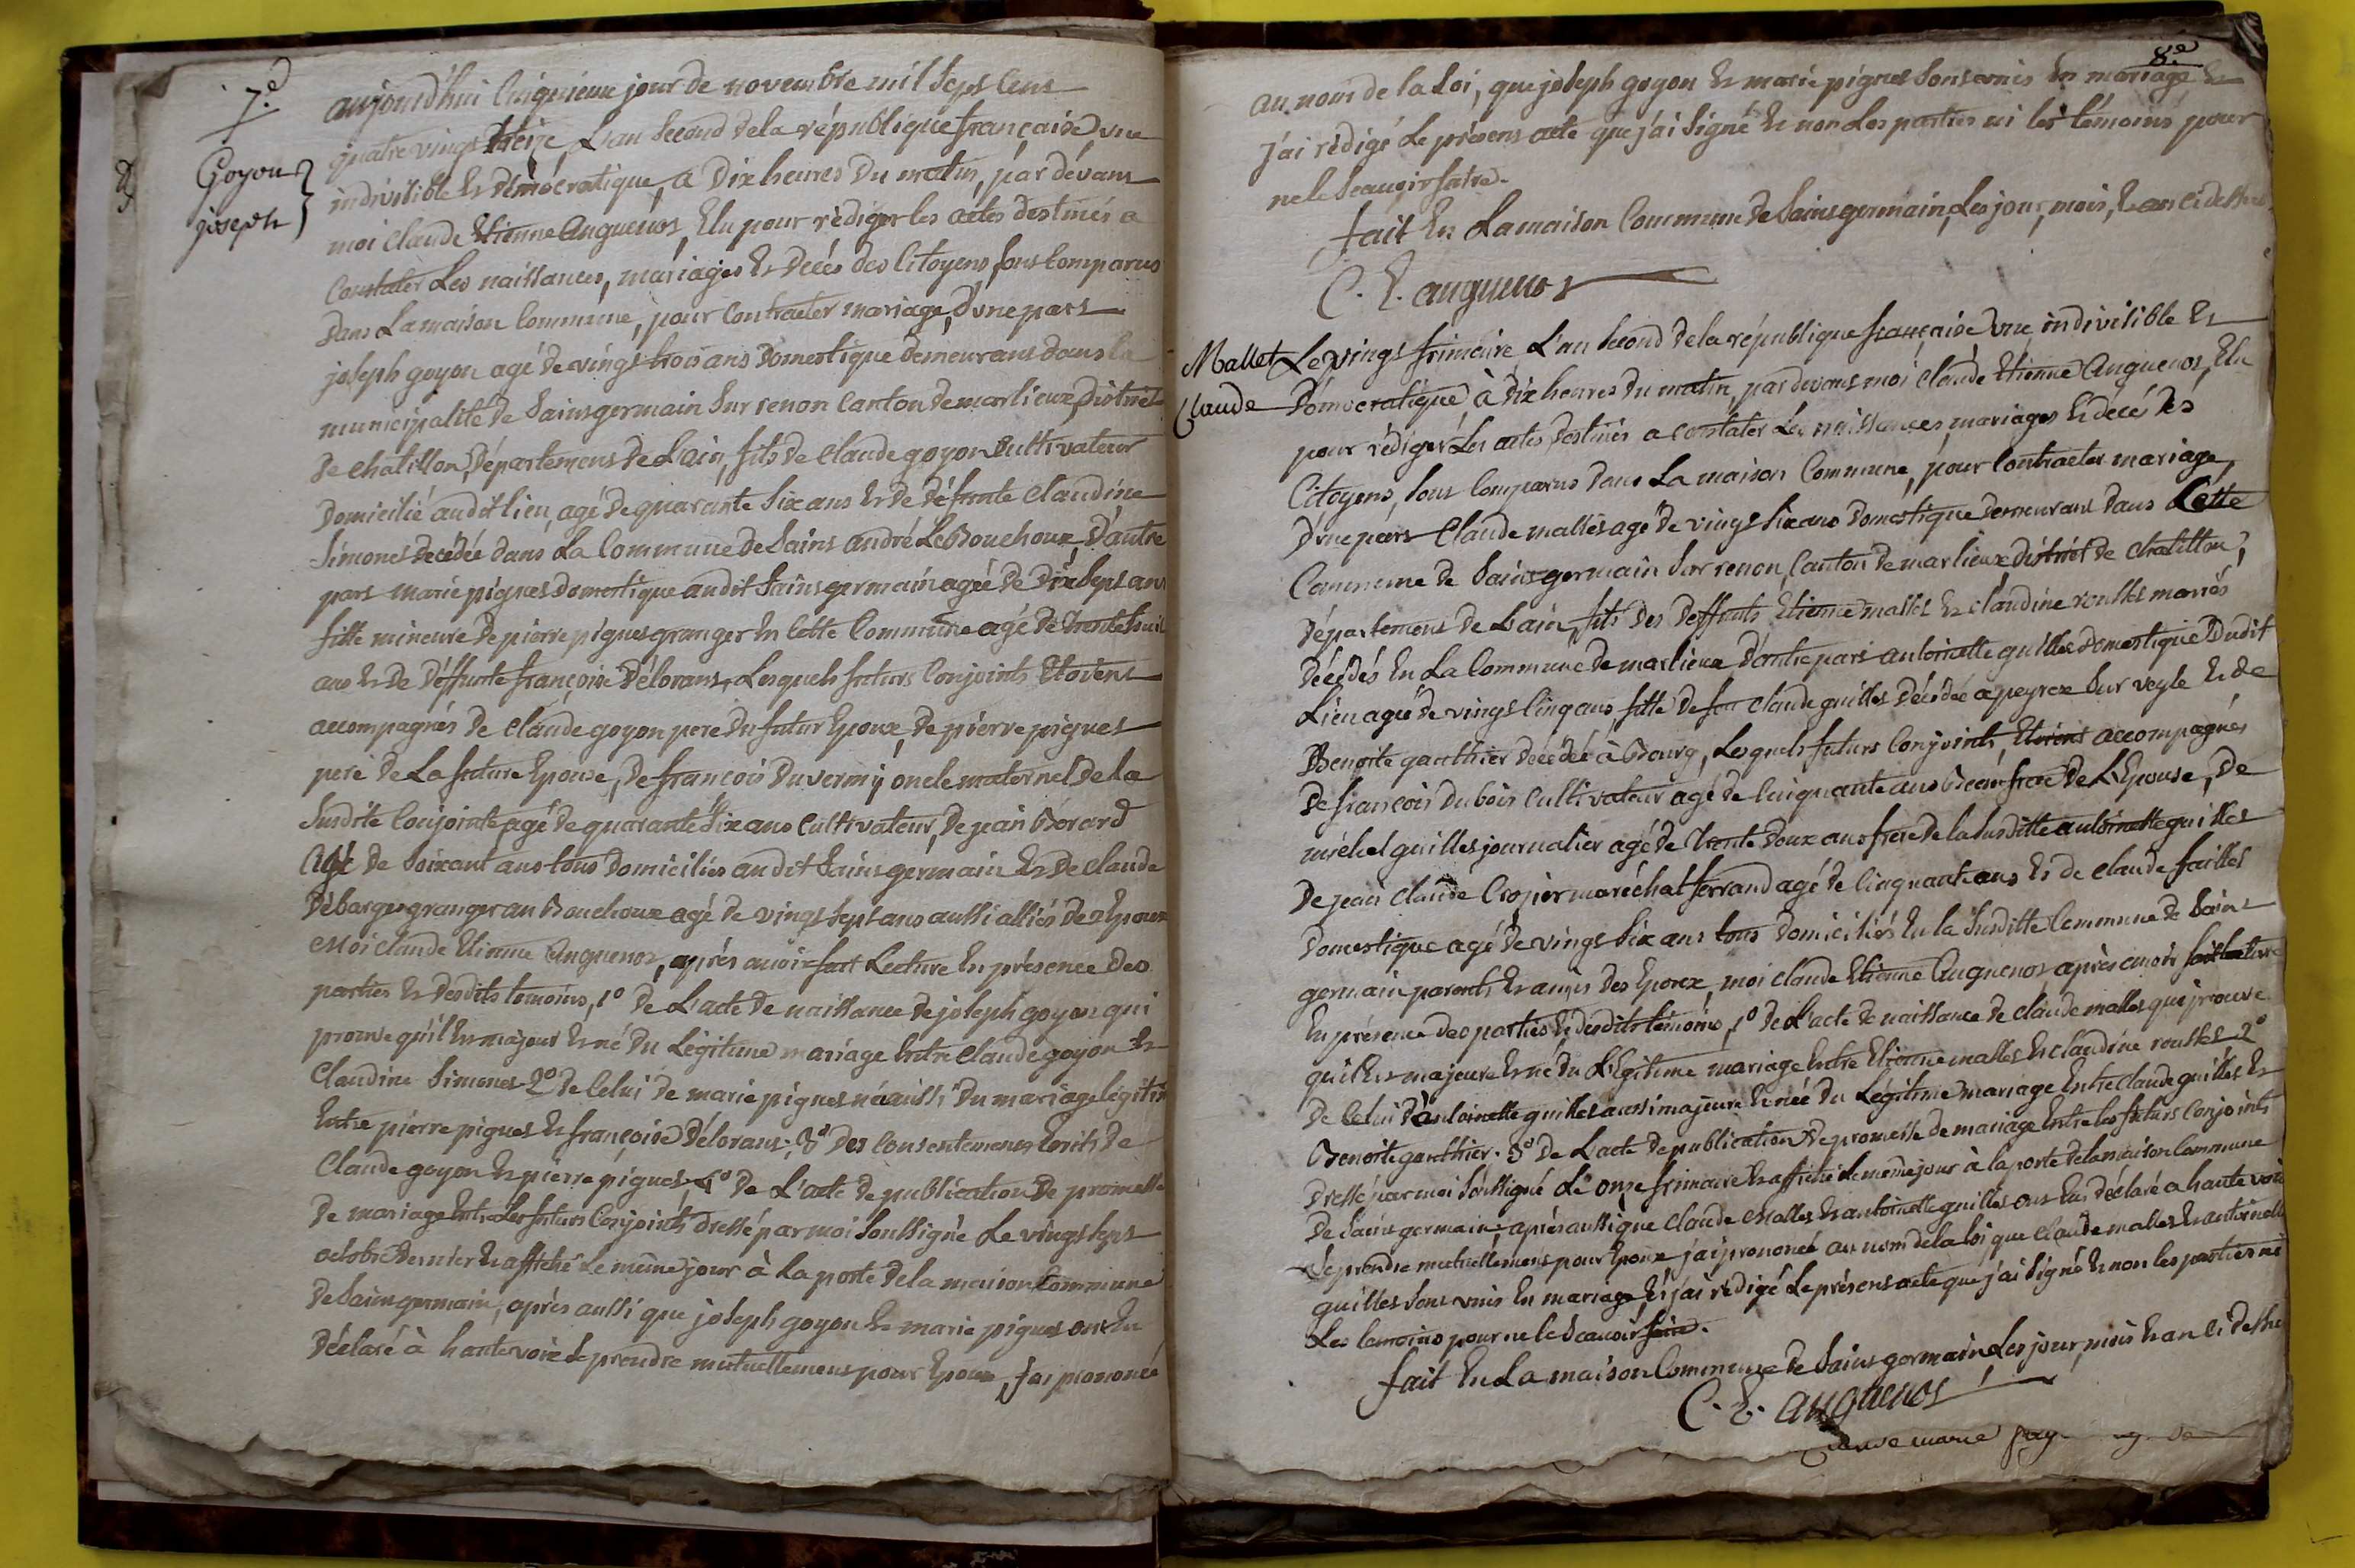 7.e
Goyon
joseph
aujourd'hui Cinquieme jour de novembre mil Sept Cent
quatre vingt treize, L'an Second de la république française, une
indivisible et démocratique, a dix heures du matin, par dévant
moi Claude Etienne Anguenot, Elu pour rédiger les actes destinés a
Constater Les naissances, mariages et décés des Citoyens sont Comparus
dans La maison Commune, pour Contracter mariage, d'une part
joseph goyon agé de vingt trois ans domestique demeurant dans la
municipalité de Saint germain Sur renon Canton de marlieux, District
de chatillon, département de L'ain, fils de Claude goyon Cultivateur
domicilié audit lieu, agé de quarante Six ans et de défunte Claudine
Simonet decédée dans La Commune de Saint andré Le Bouchoux, d'autre
part marie pignet domestique audit Saint germain agée de dix Sept ans
fille mineure de pierre pignet granger en Cette Commune agé de trente huit
ans et de déffunte françoise délorans, Lesquels futurs Conjoints Etoient
accompagnés de Claude goyon pere du futur Epoux, de pierre pignet
pere de La future Epouse, de francois Duvernay oncle maternel de la
Susdite Conjointe agé de quarante Six ans Cultivateur, de jean Bérard
agé de Soixant ans tous domiciliés audit Saint germain et de Claude
débarges granger au Bouchoux agé de vingt Sept ans aussi alliés de l'Epoux
Moi Claude Etienne Anguenot, aprés avoir fait Lecture en présence des
parties et desdits temoins, 1° de L'acte de naissance de joseph goyon qui
prouve qu'il est majeur et né du Légitime mariage Entre Claude goyon et
Claudine Simonet 2° de Celui de marie pignet née aussi du mariage légitime
Entre pierre pignet et françoise délorans; 3° des Consentement Ecrits de
Claude goyon et pierre pignet, 4° de L'acte de publication de promesse
de mariage entre Les futurs Conjoints dressé par moi Soussigné Le vingt Sept
octobre dernier et affiché Le même jour à La porte de la maison Commune
de Saint germain, après aussi que joseph goyon et marie pignet ont Eu
déclaré à haute voix Se prendre mutuellement pour Epoux, j'ai prononcé
8.e
au nom de la Loi, que joseph goyon et marie pignet Sont unis en mariage et
j'ai rédigé Le présent acte que j'ai Signé et non Les parties ni les témoins pour
ne le Scauoir faire.
fait En La maison Commune de Saint germain, Les jour, mois, et an ci dessus
C. E. anguenot
Mallet
Claude
Le vingt frimaire L'an Second de la république française, une indivisible et
Démocratique à dix heures du matin, par devant moi Claude Etienne Anguenot, Elu
pour rédiger Les actes destinés a constater Les naissances, mariages et décés des
Citoyens, Sont Comparus dans La maison Commune, pour Contracter mariage,
D'une part Claude mallet agé de vingt Six ans domestique demeurant dans Cette
Commune de Saint germain Sur renon, Canton de marlieux, district de chatillon,
département de L'ain, fils des deffunts Etienne mallet et Claudine rousset mariés
décédés En La Commune de marlieux d'autre part antoinette guillet domestique dudit
Lieu agée de vingt Cinq ans fille de feu Claude guillet décédée a peyrex Sur veyle et de
Benoite gauthier décédée à Bourg, Lesquels futurs Conjoints, Etoient accompagnés
de francois dubois Cultivateur agé de Cinquante ans Beaufrere de L'Epouse, de
michel guillet journalier agé de trente deux ans frere de la Susditte antoinette guillet
de jean Claude Crozier maréchal ferrand agé de Cinquante ans et de Claude faillet
domestique agé de vingt Six ans tous domiciliés En la Susditte Commune de Saint
germain parents et amis des Epoux, moi Claude Etienne Anguenot, après avoir fait lecture
En présence des parties et desdits témoins, 1° de L'acte de naissance de Claude mallet qui prouve
qu'il est majeure et né du Légitime mariage Entre Etienne mallet et Claudine rousset 2°
de Celui d'antoinette guillet aussi majeure et née du Légitime mariage Entre Claude guillet et
Benoite gauthier. 3° de L'acte de publication de promesse de mariage Entre les futurs Conjoints
dressé par moi Soussigné Le onze frimaire et affiché Le même jour à la porte de la maison Commune
de Saint germain, aprés aussi que Claude Mallet et antoinette guillet ont Eu déclaré a haute voix
Se prendre mutuellement pour Epoux, j'ai prononcé au nom de la loi que Claude mallet et antoinette
guillet Sont unis En mariage, Et j'ai rédigé Le présent acte que j'ai Signé et non les parties ni
Les temoins pour ne le Scauoir faire.
fait En La maison Commune de Saint germain Les jour, mois et an ci dessus
C. E. anguenot